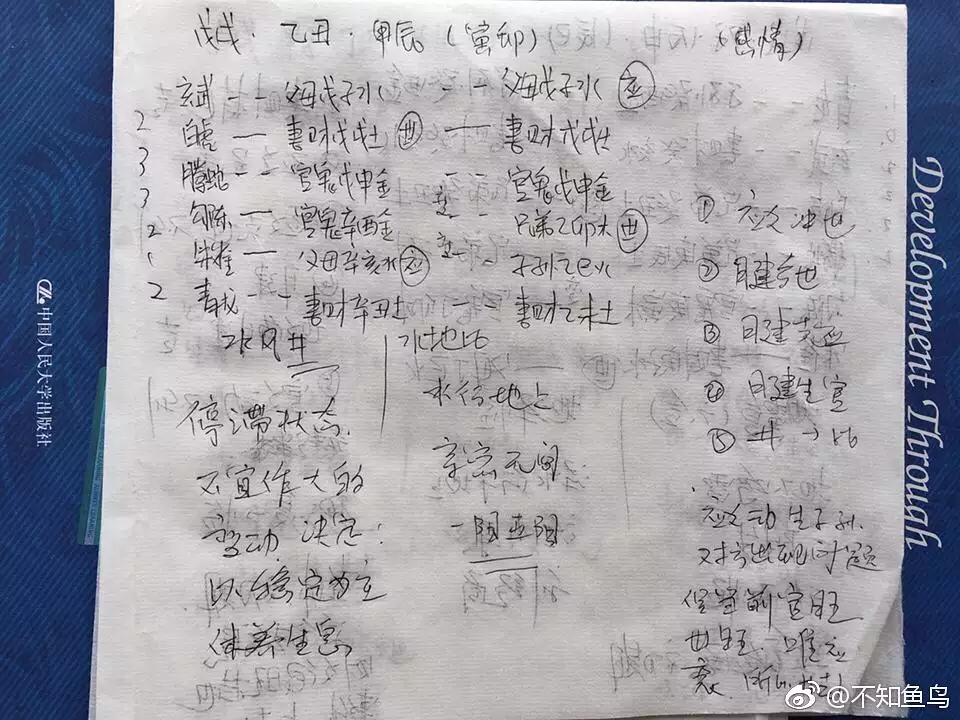 戊戌·乙丑·甲辰(寅卯)(感情)
玄武 -- 父母戊子水 -- 父母戊子水 应
2 白虎 — 妻财戊戌土 世 — 妻财戊戌土
3 腾蛇 -- 官鬼戊申金 -- 官鬼戊申金
3 勾陈 — 官鬼辛酉金 -- 兄弟乙卯木 世
2 朱雀 — 父母辛亥水 应 -- 子孙乙巳火
1
2 青龙 -- 妻财辛丑土 妻财乙未土
水风井
水地比
停滞状态
不宜作大的
变动 决定:
以稳定为主
休养生息
水行地上
亲密无间
① 应爻冲世
② 日建合世
③ 日建克应
④ 日建生官
⑤ 井→比
应爻动 生子孙.
对方出现问题
官旺
世旺. 唯应
衰.
中国人民大学出版社
Development Through
@不知鱼鸟